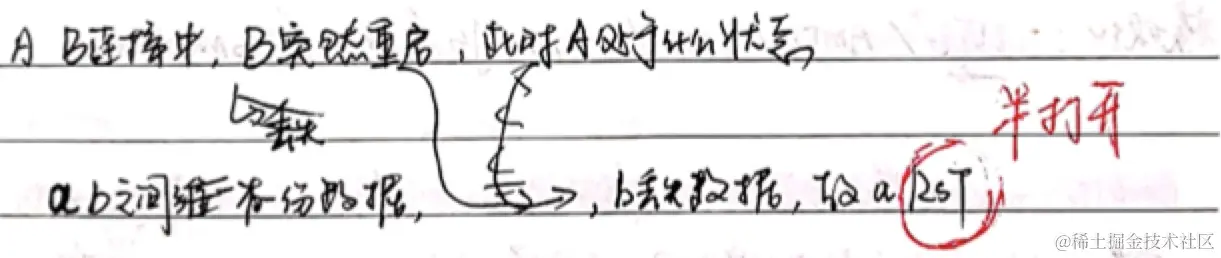 A B连接中, B突然重启, 此时A处于什么状态
丢失
半打开
a b之间维一份数据, , b丢失数据, 故a RST
@稀土掘金技术社区